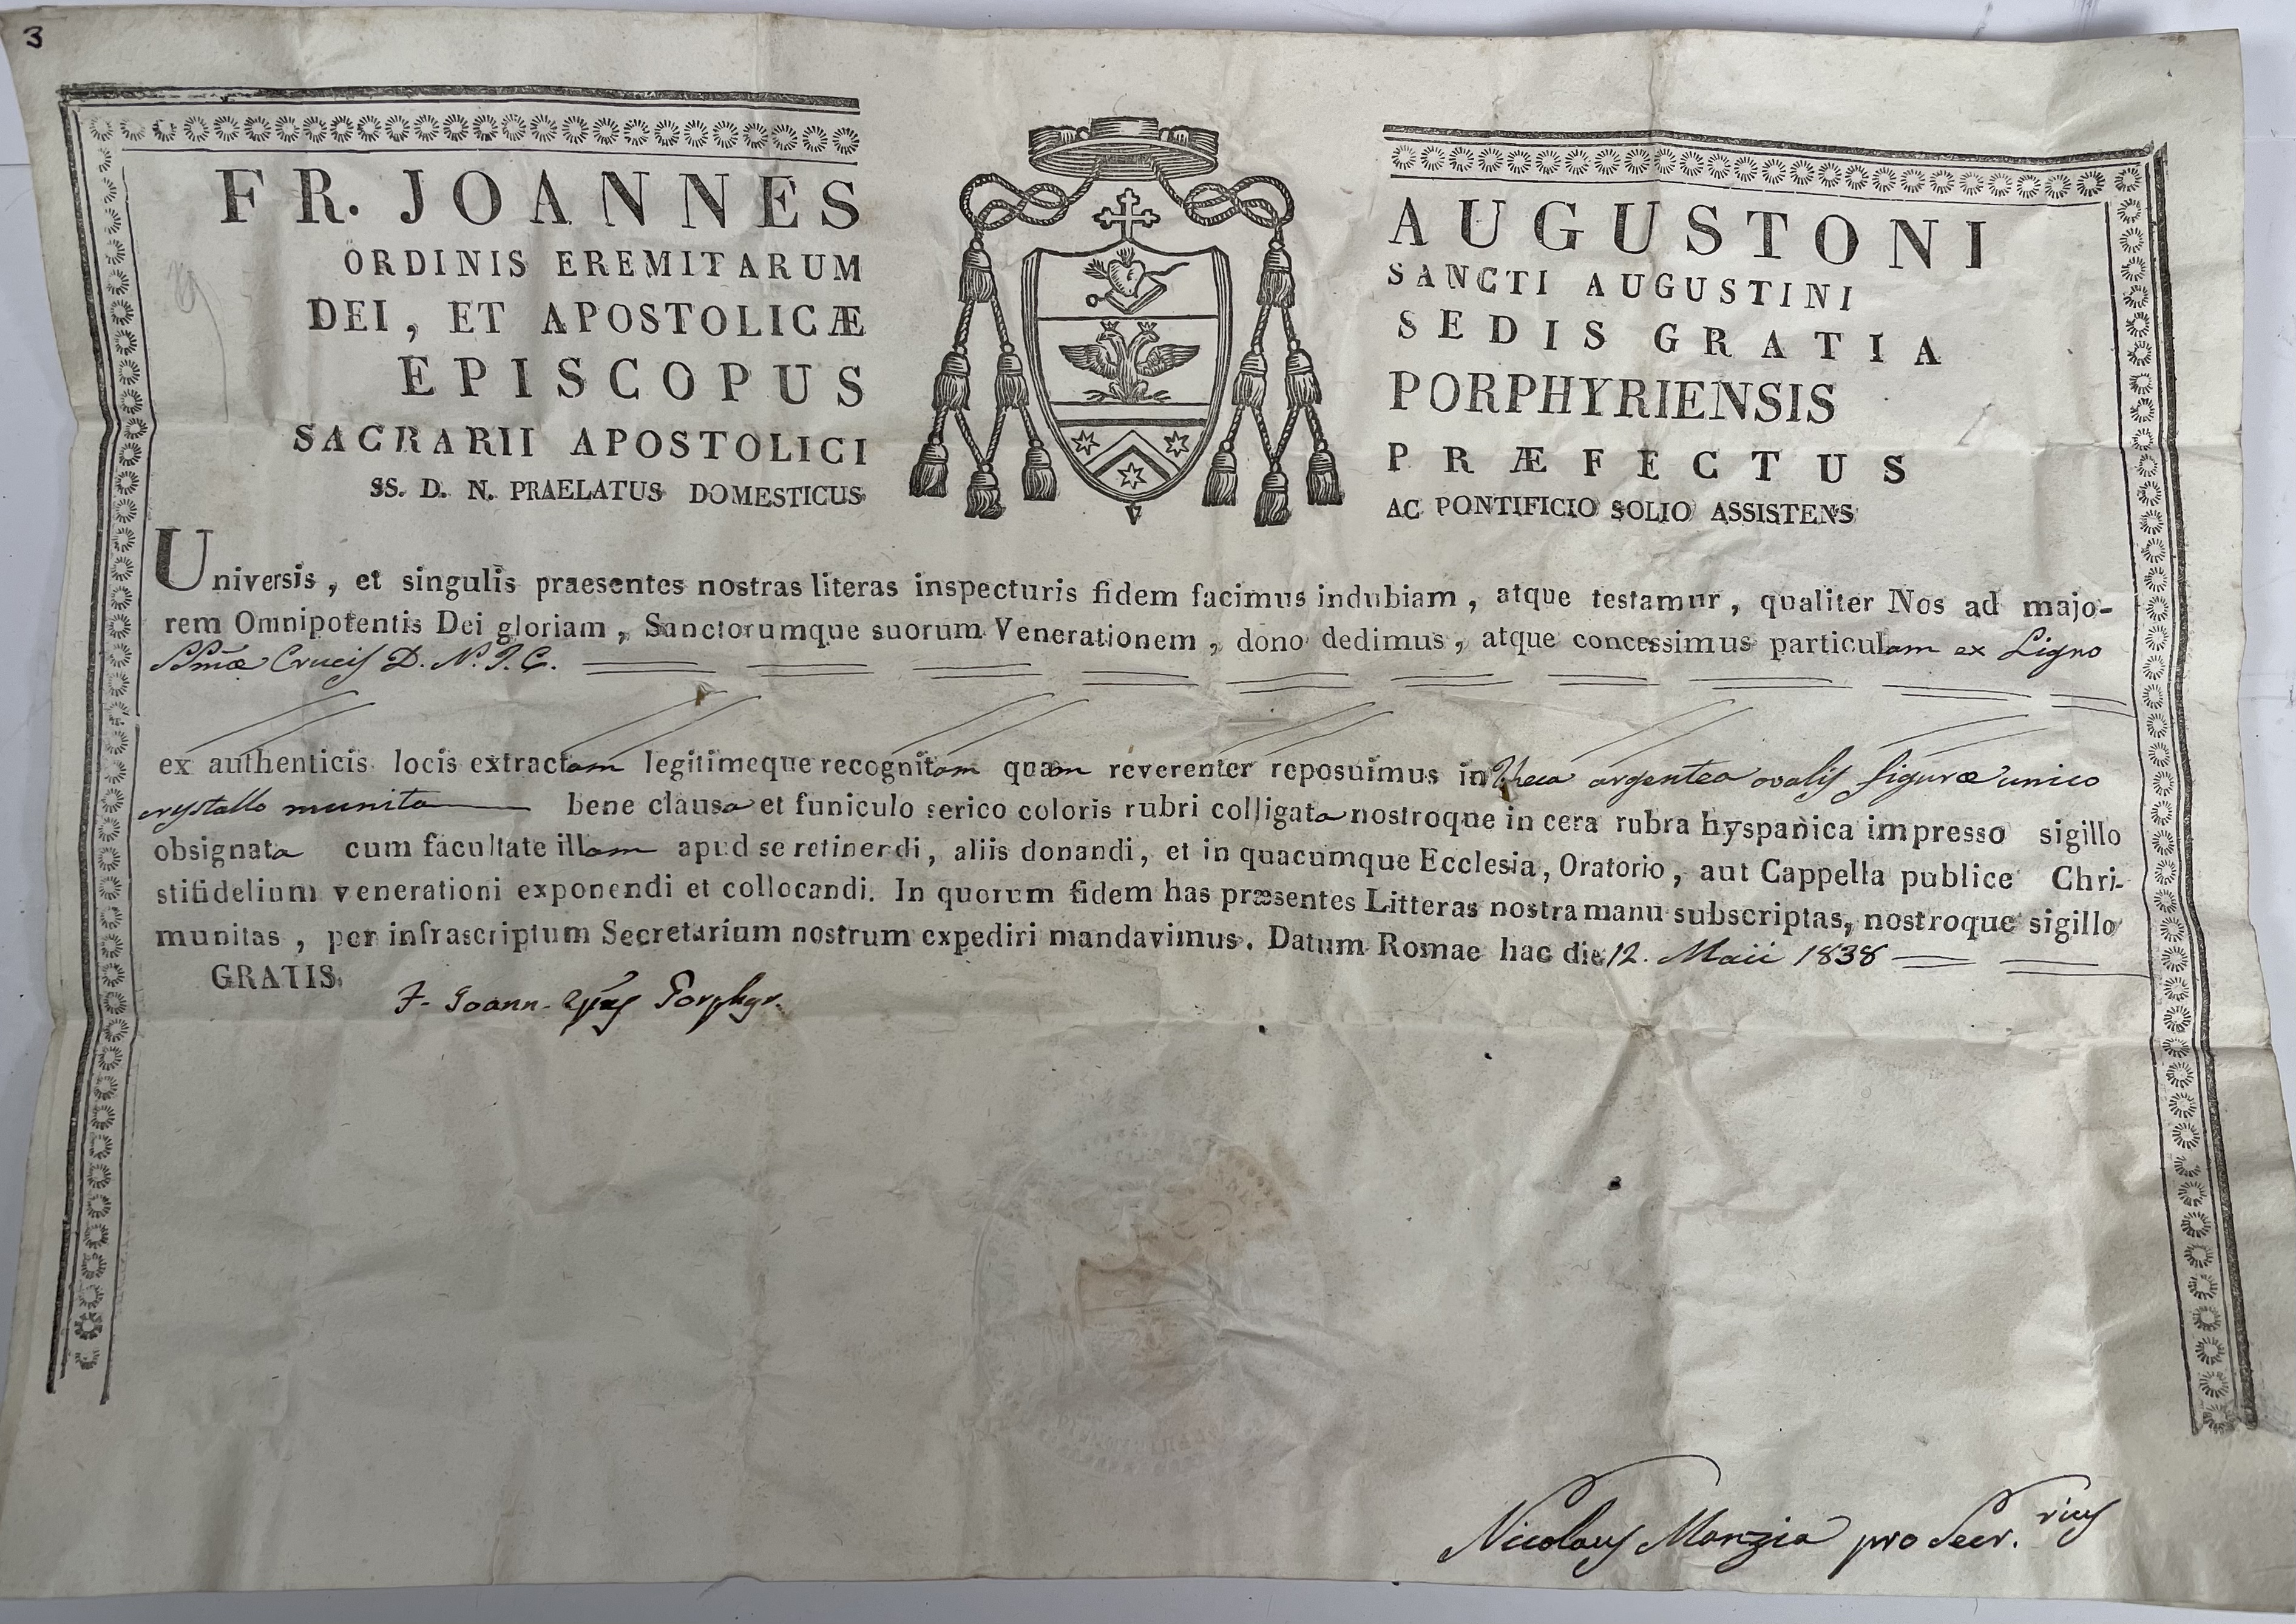 3
FR. JOANNES AUGUSTONI
ORDINIS EREMITARUM SANCTI AUGUSTINI
DEI, ET APOSTOLICÆ SEDIS GRATIA
EPISCOPUS PORPHYRIENSIS
SACRARII APOSTOLICI PRÆFECTUS
SS. D. N. PRAELATUS DOMESTICUS AC PONTIFICIO SOLIO ASSISTENS
Universis, et singulis praesentes nostras literas inspecturis fidem facimus indubiam, atque testamur, qualiter Nos ad majo-
rem Omnipotentis Dei gloriam, Sanctorumque suorum Venerationem, dono dedimus, atque concessimus particulam ex Ligno
SSmæ Crucis D. N. J. C.
ex authenticis locis extractam legitimeque recognitam quam reverenter reposuimus in theca argentea ovalis figuræ unico
crystallo munita bene clausa et funiculo serico coloris rubri colligata nostroque in cera rubra hyspanica impresso sigillo
obsignata cum facultate illam apud se retinendi, aliis donandi, et in quacumque Ecclesia, Oratorio, aut Cappella publice Chri-
stifidelium venerationi exponendi et collocandi. In quorum fidem has præsentes Litteras nostra manu subscriptas, nostroque sigillo
munitas, per infrascriptum Secretarium nostrum expediri mandavimus. Datum Romae hac die 12. Maii 1838
GRATIS.
F. Joann. Epus Porphyr.
Nicolaus Manzia pro Secr.rius